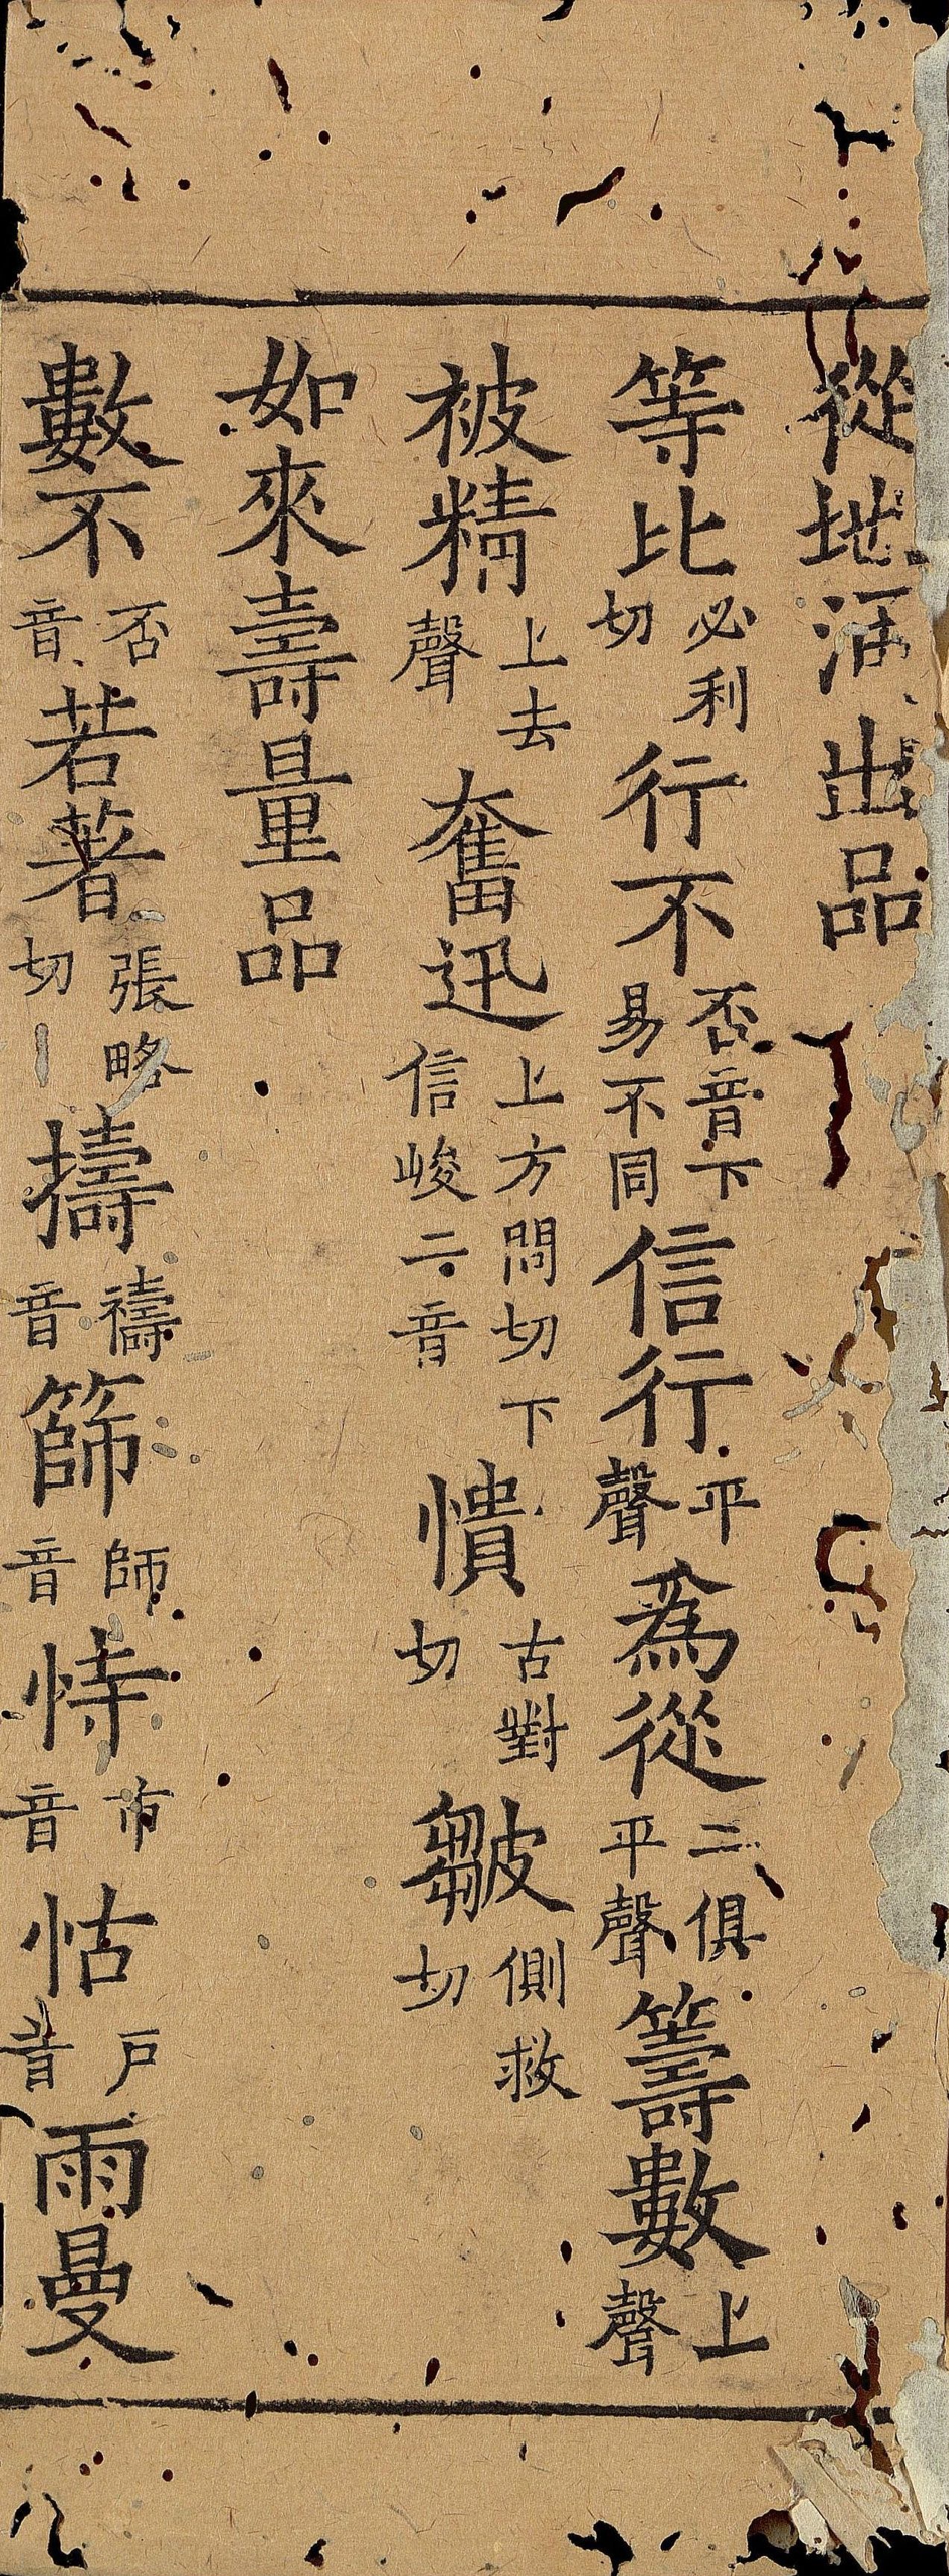 從地涌出品
等比必利切行不否音下易不同信行平聲爲從二俱平聲籌數上聲
被精上去聲奮迅上方問切下信峻二音憒古對切皺側救切
如來壽量品
數不否音若著張略切擣禱音篩師音恃市音怙戶音雨曼